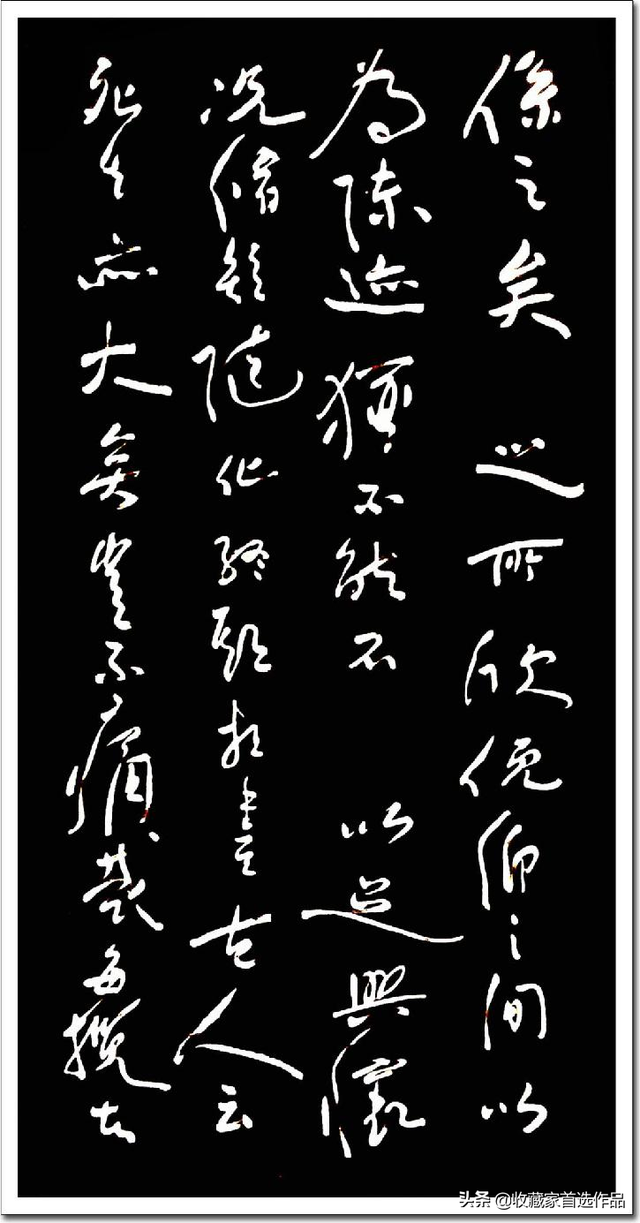 係之矣之所欣俛仰之間以
為陳迹猶不能不以之興懷
況脩短隨化終期於盡古人云
死生亦大矣豈不痛哉每攬昔
头条 @收藏家首选作品